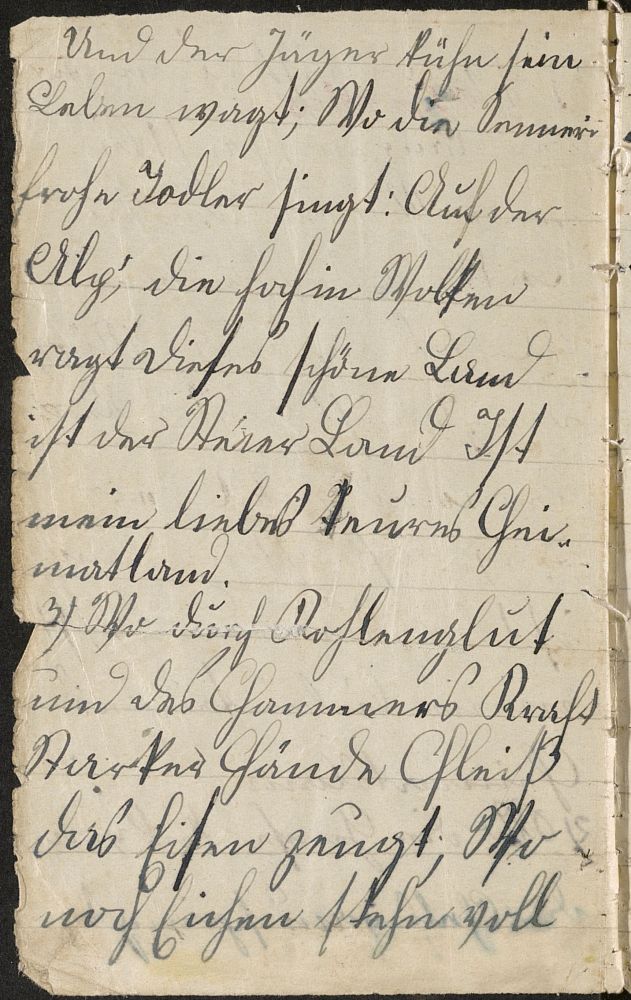 Und der Jäger kühn sein
Leben wagt; Wo die Sennerin
frohe Jodler singt: Auf der
Alp', die hoch in Wolken
ragt dieses schöne Land
ist der Steirer Land Ist
mein liebes teures Hei-
matland.
3) Wo durch Kohlenglut
und des Hammers Kraft
Starker Hände Fleiß
das Eisen zeugt; Wo
noch Eichen stehn voll